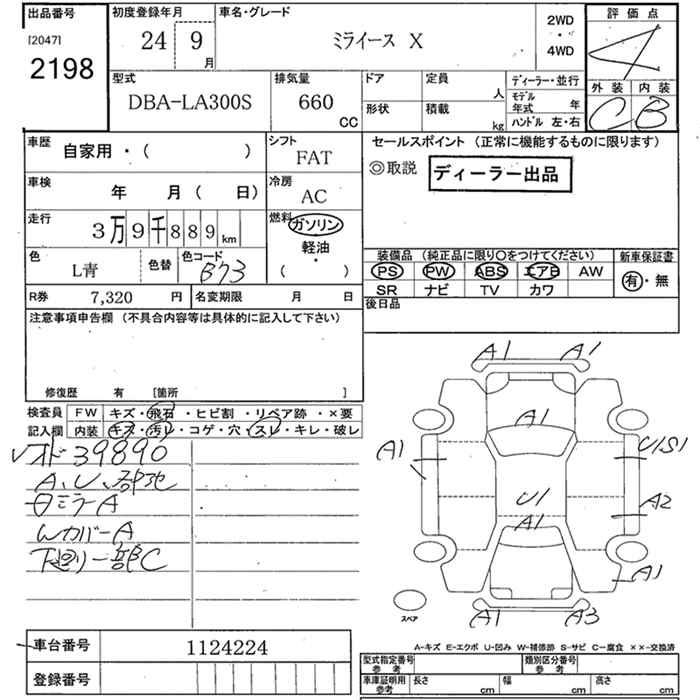 出品番号
[2047]
2198
初度登録年月
24 9 月
車名・グレード
ミライース X
2WD
・
4WD
評価点
4
外装 内装
C B
型式
DBA-LA300S
排気量
660 CC
ドア
定員 人
形状
積載 kg
ディーラー・並行
モデル年式 年
ハンドル 左・右
車歴
自家用・( )
シフト
FAT
車検
年 月( 日)
冷房
AC
走行
3万9千889km
燃料
ガソリン
軽油
・
( )
色
L青
色替
色コード
B73
R券 7,320 円
名変期限 月 日
セールスポイント (正常に機能するものに限ります)
◎取説 ディーラー出品
装備品 (純正品に限り〇をつけてください)
PS PW ABS エアB AW
SR ナビ TV カワ
新車保証書
有・無
後日品
注意事項申告欄 (不具合内容等は具体的に記入して下さい)
修復歴 有 [箇所 ]
検査員記入欄
FW キズ・飛石・ヒビ割・リペア跡・×要
内装 キズ・汚レ・コゲ・穴・スレ・キレ・破レ
39890
A、U、
ミラーA
WカバーA
下廻り一部C
A1 A1
A1
A1
U1S1
U1
A2
A1
A1
A1 A3
スペア
A-キズ E-エクボ U-凹み W-補修跡 S-サビ C-腐食 ××-交換済
車台番号 1124224
登録番号
型式指定番号 参考
類別区分番号 参考
車庫証明用 参考
長さ cm
幅 cm
高さ cm